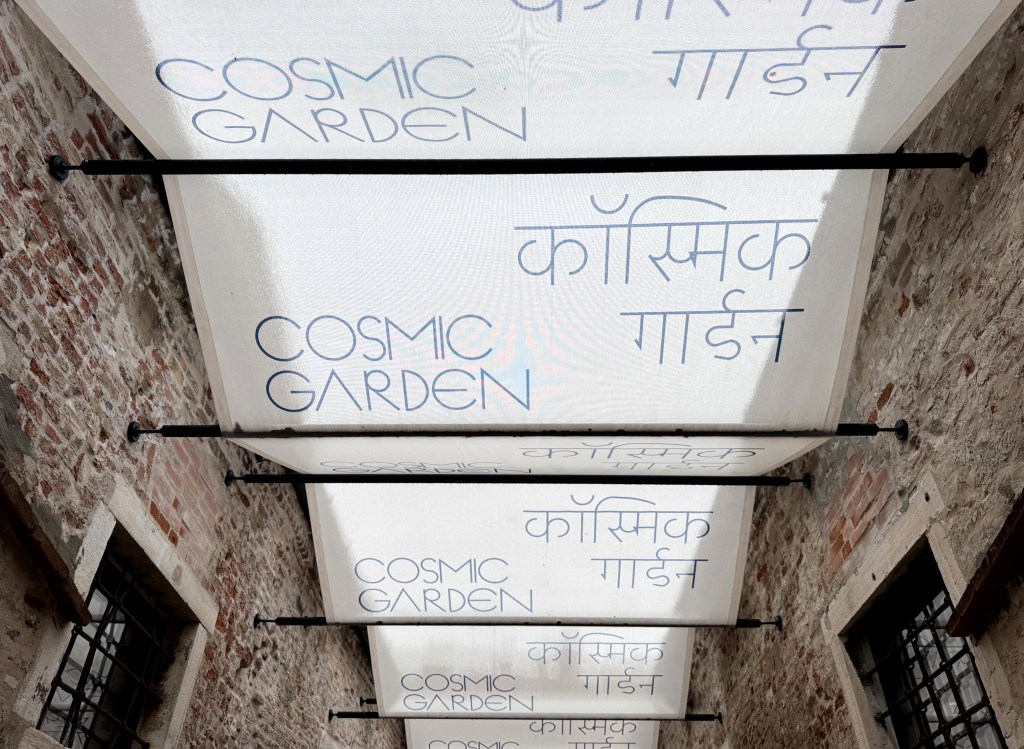 कॉस्मिक
गार्डन
COSMIC
GARDEN
कॉस्मिक
गार्डन
COSMIC
GARDEN
कॉस्मिक
गार्डन
COSMIC
GARDEN
कॉस्मिक
गार्डन
COSMIC
GARDEN
कॉस्मिक
गार्डन
COSMIC
GARDEN
कॉस्मिक
गार्डन
COSMIC